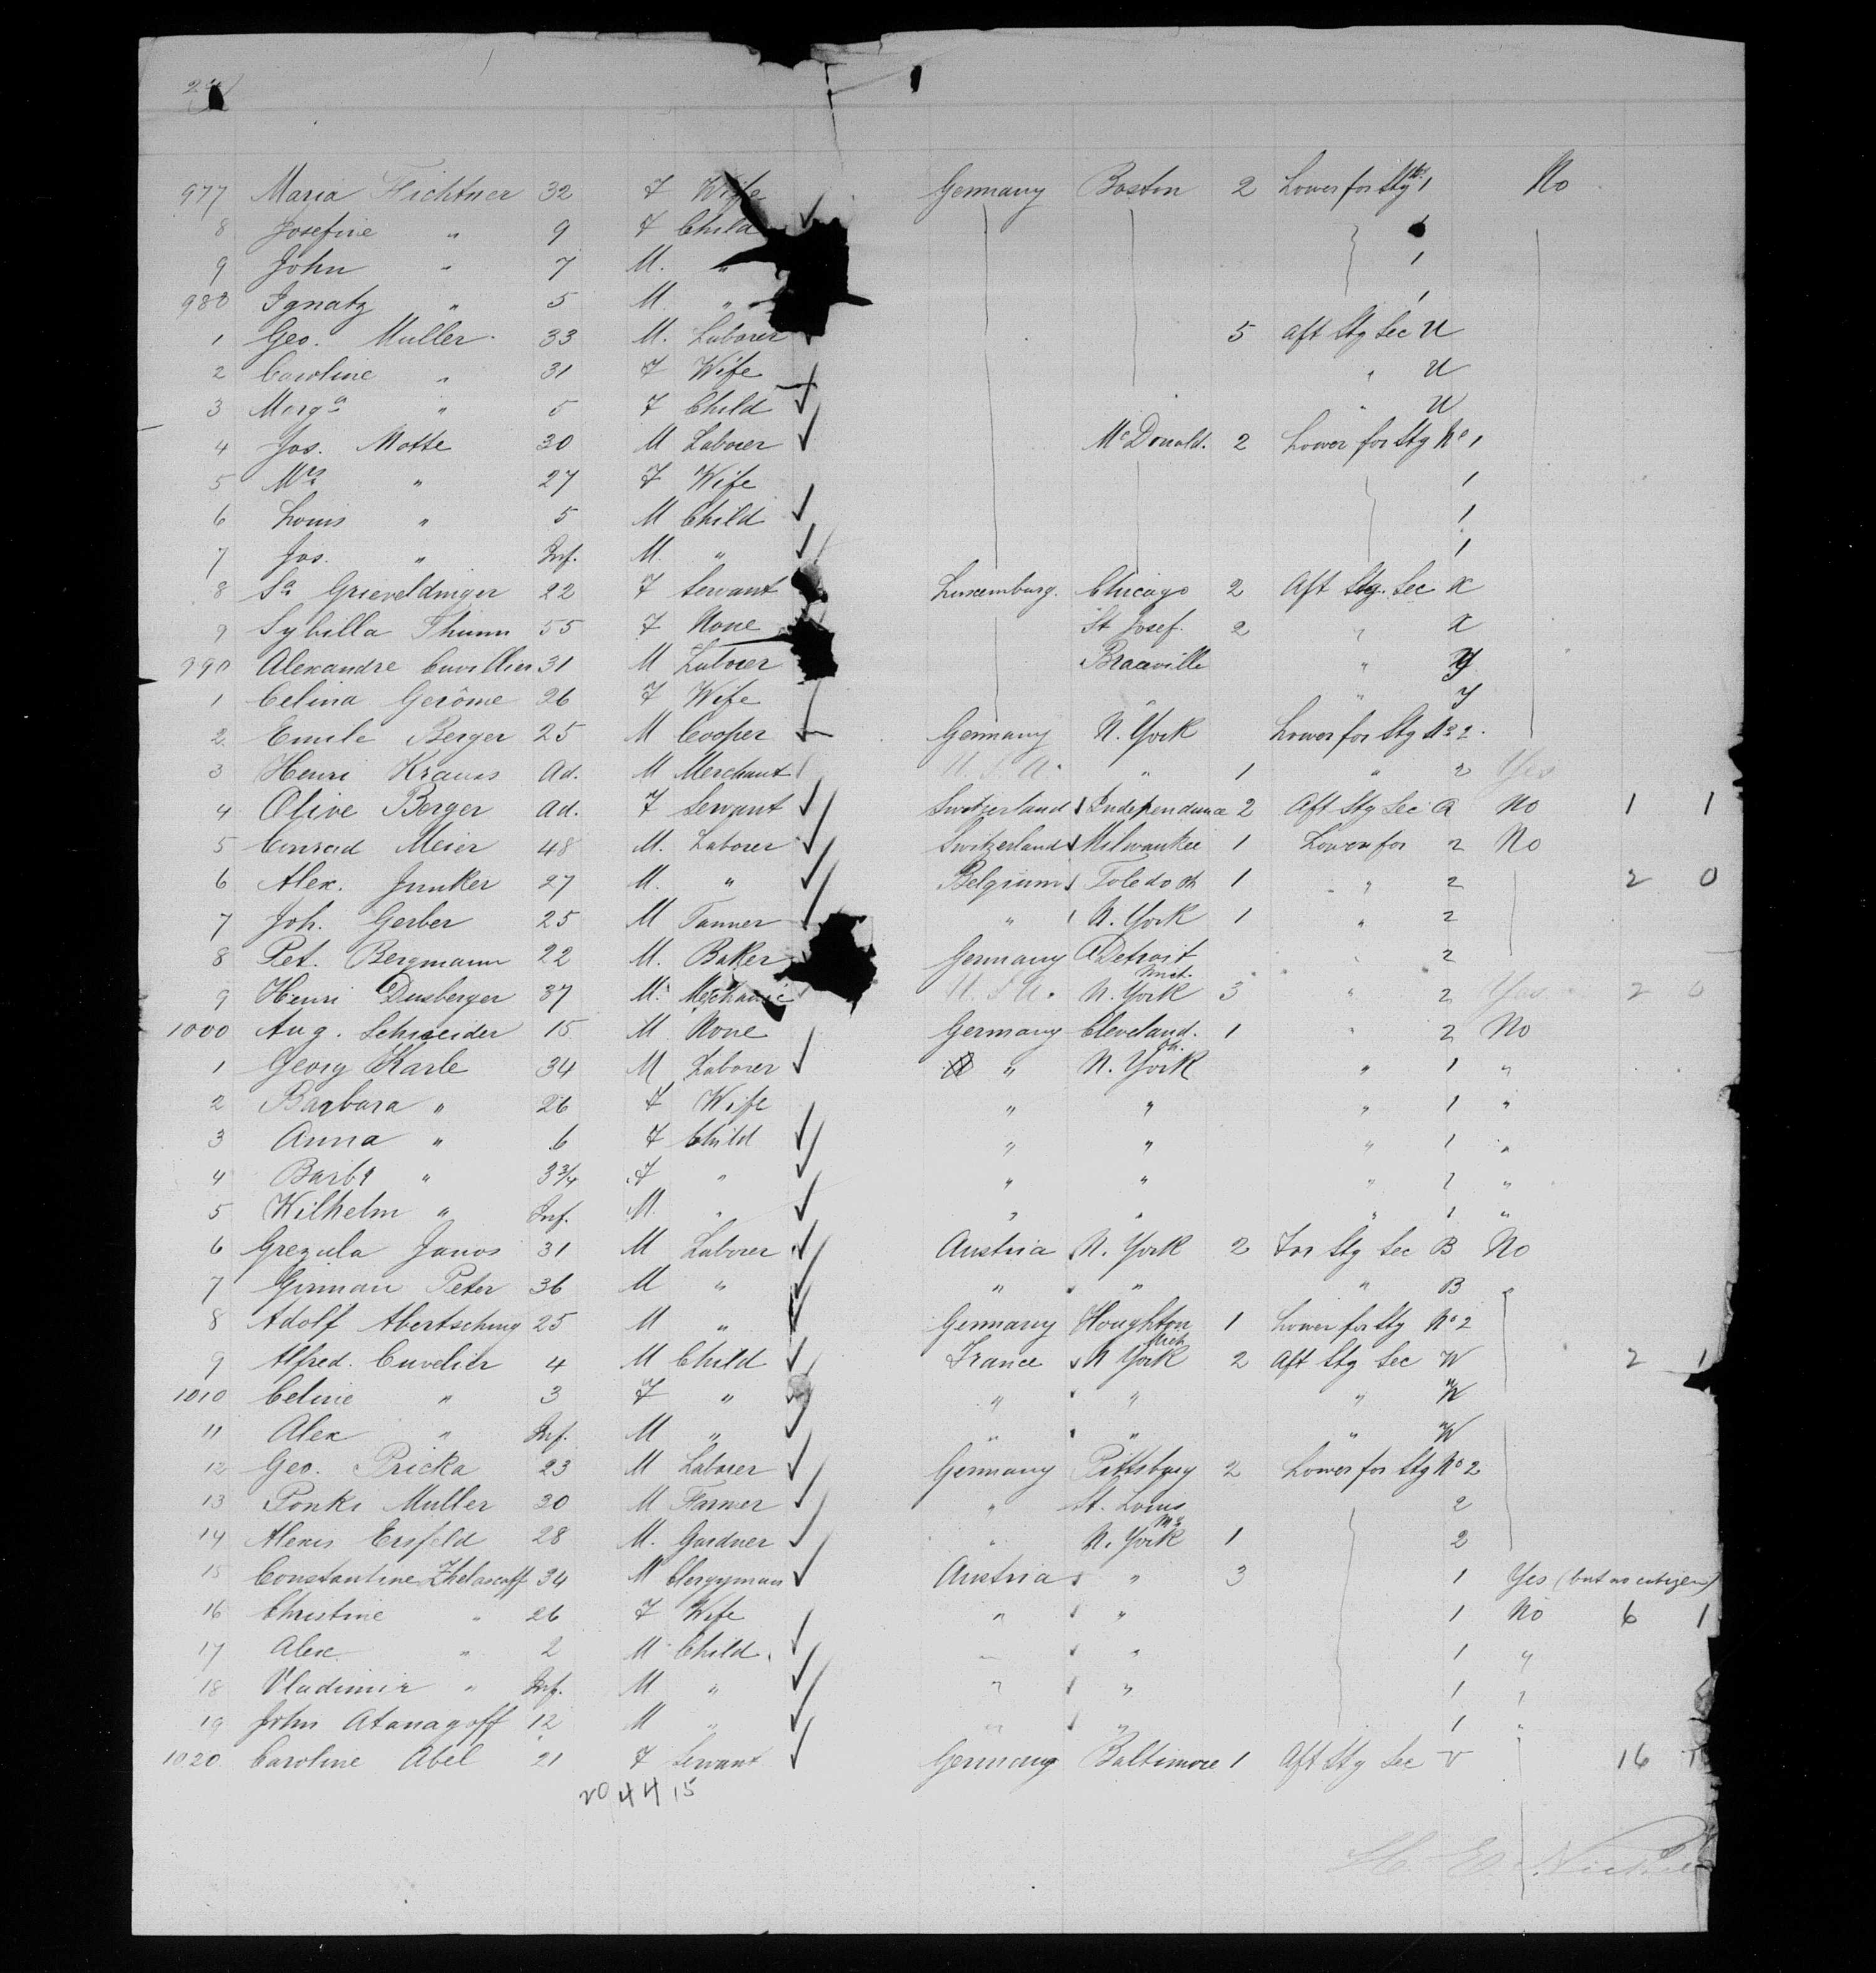 977 Maria Fichtner 32 F Wife Germany Boston 2 Lower for Stg No 1 No
8 Josefine " 9 F Child
9 John " 7 M. " 1
980 Ignatz " 5 M " 1
1 Geo. Muller 33 M. Laborer 5 aft Stg Sec U
2 Caroline " 31 F Wife " U
3 Marga " 5 F Child " U
4 Jos. Motte 30 M Laborer McDonald. 2 Lower for Stg No 1
5 Mrs " 27 F Wife 1
6 Louis " 5 M Child 1
7 Jos. " Inf. M. " 1
8 Sa Grieveldinger 22 F Servant Luxemburg. Chicago 2 Aft Stg. Sec X
9 Sybilla Thunn 55 F None St Josef. 2 " X
990 Alexandre Cuvillier 31 M Laborer Braceville " Y
1 Celina Gerôme 26 F Wife " " Y
2 Emile Berger 25 M Cooper Germany N. York Lower for Stg No 2.
3 Henri Krauss Ad. M Merchant U. S. A. " 1 " 2 Yes
4 Olive Berger ad. F Servant Switzerland Independance 2 Aft Stg Sec A No 1 1
5 Conrad Meier 48 M. Laborer Switzerland Milwaukee 1 Lower for 2 No
6 Alex. Junker 27 M. " Belgium Toledo Oh 1 " 2 2 0
7 Joh. Gerber 25 M Tanner " N. York 1 " 2
8 Pet. Bergmann 22 M. Baker Germany Detroit Mich. " 2
9 Henri Dusberger 37 M. Mechanic U. S. A. N. York 3 " 2 Yes 2 0
1000 Aug. Schneider 15 M None Germany Cleveland. Oh. 1 " 2 No
1 Georg Karle 34 M Laborer " N. York " 1 "
2 Barbara " 26 F Wife " " " 1 "
3 Anna " 6 F Child " " " 1 "
4 Barba " 3 3/4 F " " " " 1 "
5 Wilhelm " Inf. M. " " " " 1 "
6 Grezula Janos 31 M Laborer Austria N. York 2 For Stg Sec B No
7 Girman Peter 36 M " " " " B
8 Adolf Abertschung 25 M " Germany Houghton Mich 1 Lower for Stg No 2
9 Alfred. Cuvelier 4 M Child France N York 2 Aft Stg Sec W 2 1
1010 Celine " 3 F " " " " W
11 Alex " Inf. M " " " " W
12 Geo. Pricka 23 M Laborer Germany Pittsburg 2 Lower for Stg No 2
13 Ponki Muller 30 M Farmer " St. Louis Mo 2
14 Alexis Ersfeld 28 M. Gardner " N. York 1 2
15 Constantine Zhelascoff 34 M Clergyman Austria " 3 1 Yes (but no citizen)
16 Christine " 26 F Wife " " 1 No 6 1
17 Alex. " 2 M Child. " " 1 "
18 Vladimir " Inf. M " " " 1 "
19 John Atanagoff 12 M " " " 1 "
1020 Caroline Abel 21 F Servant Germany Baltimore 1 Aft Stg Sec V " 16
20 4 4 15